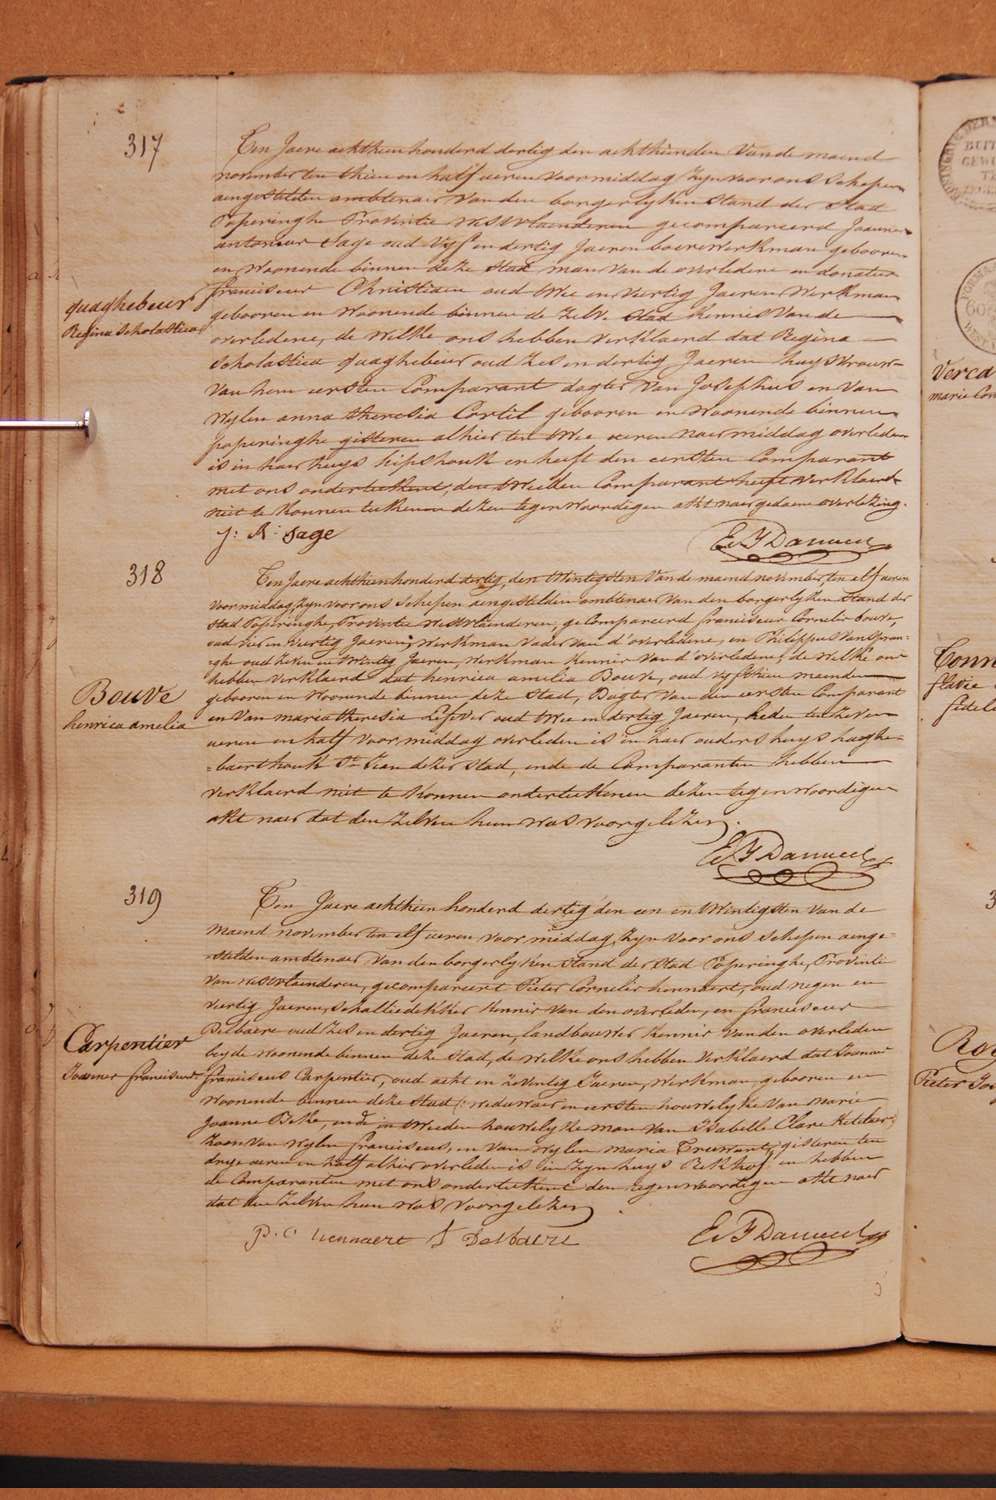 317
quaghebeur
Regina Scholastica
Ten Jaere achthien honderd dertig den achthienden Van de maend
november ten thien en half ueren voormiddag, Zyn voor ons Schepen
aengestelden ambtenaer Van den borgerlyken Stand der Stad
Poperinghe Provintie westvlaenderen gecompareerd Joannes
antonius Sage oud Vyf en dertig Jaeren boerewerkman gebooren
en woonende binnen deze Stad man Van de overledene en donatus
franciscus Christiaen oud twee en Viertig Jaeren Werkman
gebooren en woonende binnen de Zelve Stad kennis Van de
overledene, de Welke ons hebben verklaerd dat Regina
Scholastica quaghebeur oud Zes en dertig Jaeren huysvrouw
Van hem eersten Comparant dogter Van Josephus en Van
Wylen anna theresia Cortil gebooren en woonende binnen
poperinghe gisteren alhier ten twee ueren naermiddag overleden
is in haer huys hipshoek en heeft den eersten Comparant
met ons onderteekent, den tweeden Comparant heeft verklaerd
niet te konnen teekenen dezen tegenwoordigen akt naer gedaene overlezing.
J: A: Sage
E F Danneel
318
Bouve
henrica amelia
Ten Jaere achthien honderd dertig, den twintigsten Van de maend november, ten elf ueren
voormiddag, Zyn voor ons Schepen aengestelden ambtenaer Van den borgerlyken Stand der
Stad Poperinghe, Provintie Westvlaenderen, gecompareerd franciscus Cornelis Bouve,
oud vier en viertig Jaeren, Werkman Vader van d'overledene, en Philippus Vanspran-
-ghe oud Zeven en twintig Jaeren, Werkman kennis Van d'overledene, de Welke ons
hebben Verklaerd dat henrica amelia Bouve, oud vyfthien maenden
gebooren en woonende binnen deze Stad, Dogter Van den eersten Comparant
en Van maria theresia Lefever oud twee en dertig Jaeren, heden ten Zeven
ueren en half voormiddag overleden is in haer ouders huys haeghe-
-baerthoek St Jan dezer Stad, ende de Comparanten hebben
verklaerd niet te konnen onderteekenen dezen tegenwoordigen
akt naer dat den Zelven hun was voorgelezen.
E F Danneel
319
Carpentier
Joannes franciscus
Ten Jaere achthien honderd dertig den een en twintigsten Van de
maend november ten elf ueren voormiddag, Zyn Voor ons Schepen aenge-
-stelden ambtenaer Van den borgerlyken Stand der Stad Poperinghe, Provintie
Van westvlaenderen, gecompareert Pieter Cornelis hennaert, oud negen en
viertig Jaeren, Schalliedekker kennis Van den overleden, en franciscus
Delbaere oud Zes en dertig Jaeren, landbouwer kennis Van den overleden
beyde woonende binnen deze Stad, de welke ons hebben Verklaerd dat Joannes
franciscus Carpentier, oud acht en Zeventig Jaeren, Werkman gebooren en
woonende binnen deze Stad, weduwaer in eersten houwelyke Van Marie
Joanne Beke, ende in tweeden houwelyke man Van Isabelle Clare Ketelaers
Zoon Van Wylen franciscus, en Van wylen maria Truwant, gisteren ten
drye ueren en half alhier overleden is in Zyn huys Rekhof en hebben
de Comparanten met ons onderteekent den tegenwoordigen akt naer
dat den Zelven hun was Voorgelezen
p. c hennaert f Delbaere
E F Danneel
Verca
marie Con
Conn
flavie
fidele
3
Ro
Pieter Jo